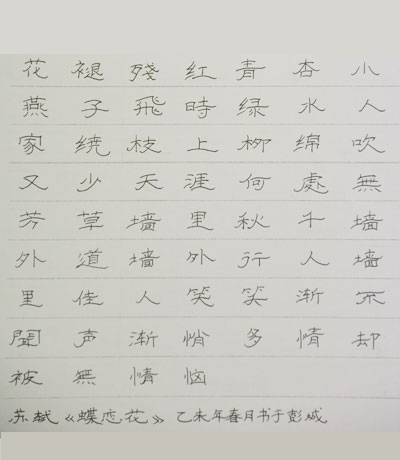 花褪殘红青杏小
燕子飛時绿水人
家绕枝上柳绵吹
又少天涯何處無
芳草墙里秋千墙
外道墙外行人墙
里佳人笑笑渐不
聞声渐悄多情却
被無情恼
苏轼《蝶恋花》乙未年春月书于彭城